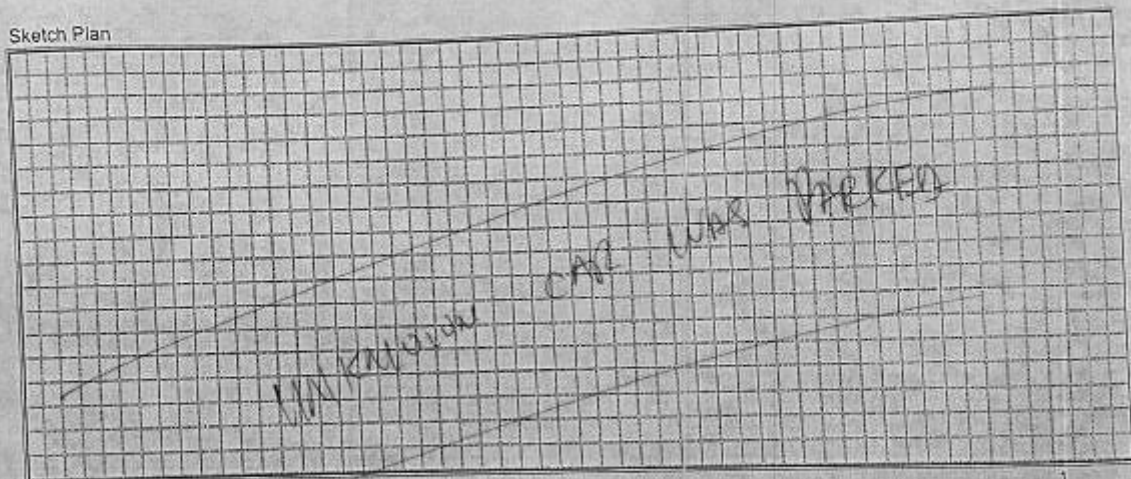 Sketch Plan
UNKNOWN CAR WAS PARKED